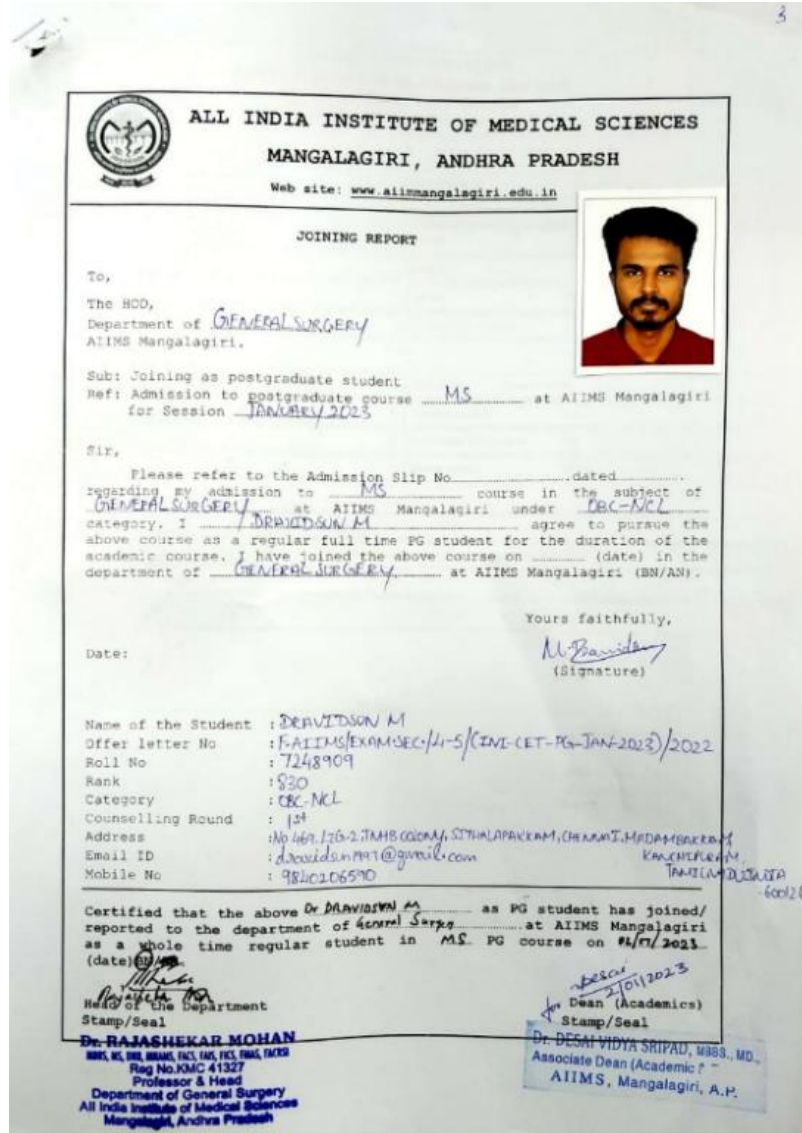 3
ALL INDIA INSTITUTE OF MEDICAL SCIENCES
MANGALAGIRI, ANDHRA PRADESH
Web site: www.aiimmangalagiri.edu.in
JOINING REPORT
To,
The HOD,
Department of GENERAL SURGERY
AIIMS Mangalagiri.
Sub: Joining as postgraduate student
Ref: Admission to postgraduate course MS at AIIMS Mangalagiri
for Session JANUARY 2023
Sir,
Please refer to the Admission Slip No. dated
regarding my admission to MS course in the subject of
GENERAL SURGERY at AIIMS Mangalagiri under OBC-NCL
category. I DRAVIDSON M agree to pursue the
above course as a regular full time PG student for the duration of the
academic course. I have joined the above course on (date) in the
department of GENERAL SURGERY at AIIMS Mangalagiri (BN/AN).
Yours faithfully,
Date:
(Signature)
Name of the Student : DRAVIDSON M
Offer letter No : F.AIIMS/EXAM.SEC./4-5/(INI-CET-PG-JAN-2023)/2022
Roll No : 7248909
Rank : 830
Category : OBC-NCL
Counselling Round : 1st
Address : No 469, SITHALAPAKKAM, CHENNAI, MADAMBAKKAM
KANCHIPURAM,
Email ID : @gmail.com
TAMILNADU, INDIA
Mobile No : 9840206590
Certified that the above Dr DRAVIDSON M as PG student has joined/
reported to the department of General Surgery at AIIMS Mangalagiri
as a whole time regular student in MS PG course on
(date)
Desai
2/01/2023
Head of the Department
for Dean (Academics)
Stamp/Seal
Stamp/Seal
Dr. RAJASHEKAR MOHAN
MBBS, MS, DNB, MNAMS, FACS, FAIS, FICS, FMAS, FACRSI
Reg No.KMC 41327
Professor & Head
Department of General Surgery
All India Institute of Medical Sciences
Mangalagiri, Andhra Pradesh
Dr. DESAI VIDYA SRIPAD, MBBS., MD.,
Associate Dean (Academic
AIIMS, Mangalagiri, A.P.